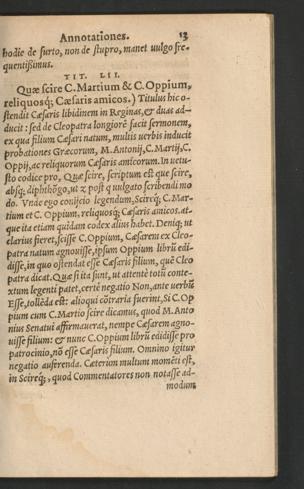 Annotationes. 13
hodie de furto, non de stupro, manet uulgo fre=
quentißimus.
TIT. LII.
Quæ scire C. Martium & C. Oppium,
reliquosq́; Cæsaris amicos.) Titulus hic o=
stendit Cæsaris libidinem in Reginas, & duas ad=
ducit: sed de Cleopatra longiorē facit sermonem,
ex qua filium Cæsari natum, multis uerbis inducit
probationes Græcorum, M. Antonij, C. Martij, C.
Oppij, ac reliquorum Cæsaris amicorum. In uetu=
sto codice pro, Quæ scire, scriptum est que scire,
absq; diphthõgo, ut post uulgato scribendi mo
do. Vnde ego conijcio legendum, Scireq́; C. Mar=
tium et C. Oppium, reliquosq́; Cæsaris amicos. at=
que ita etiam quidam codex alius habet. Deniq; ut
clarius fieret, scisse C. Oppium, Cæsarem ex Cleo=
patra natum agnouisse, ipsum Oppium librū edi=
disse, in quo ostendat esse Cæsaris filium, quē Cleo
patra dicat. Quæ si ita sunt, ut attentè totū conte=
xtum legenti patet, certè negatio Non, ante uerbū
Esse, tollēda est: alioqui cõtraria fuerint, Si C. Op
pium cum C. Martio scire dicamus, quod M. Anto
nius Senatui affirmauerat, nempe Cæsarem agno=
uisse filium: & nunc C. Oppium librū edidisse pro
patrocinio, nõ esse Cæsaris filium. Omnino igitur
negatio auferenda. Cæterum multum momēti est,
in Scireq́;, quod Commentatores non notasse ad=
modum